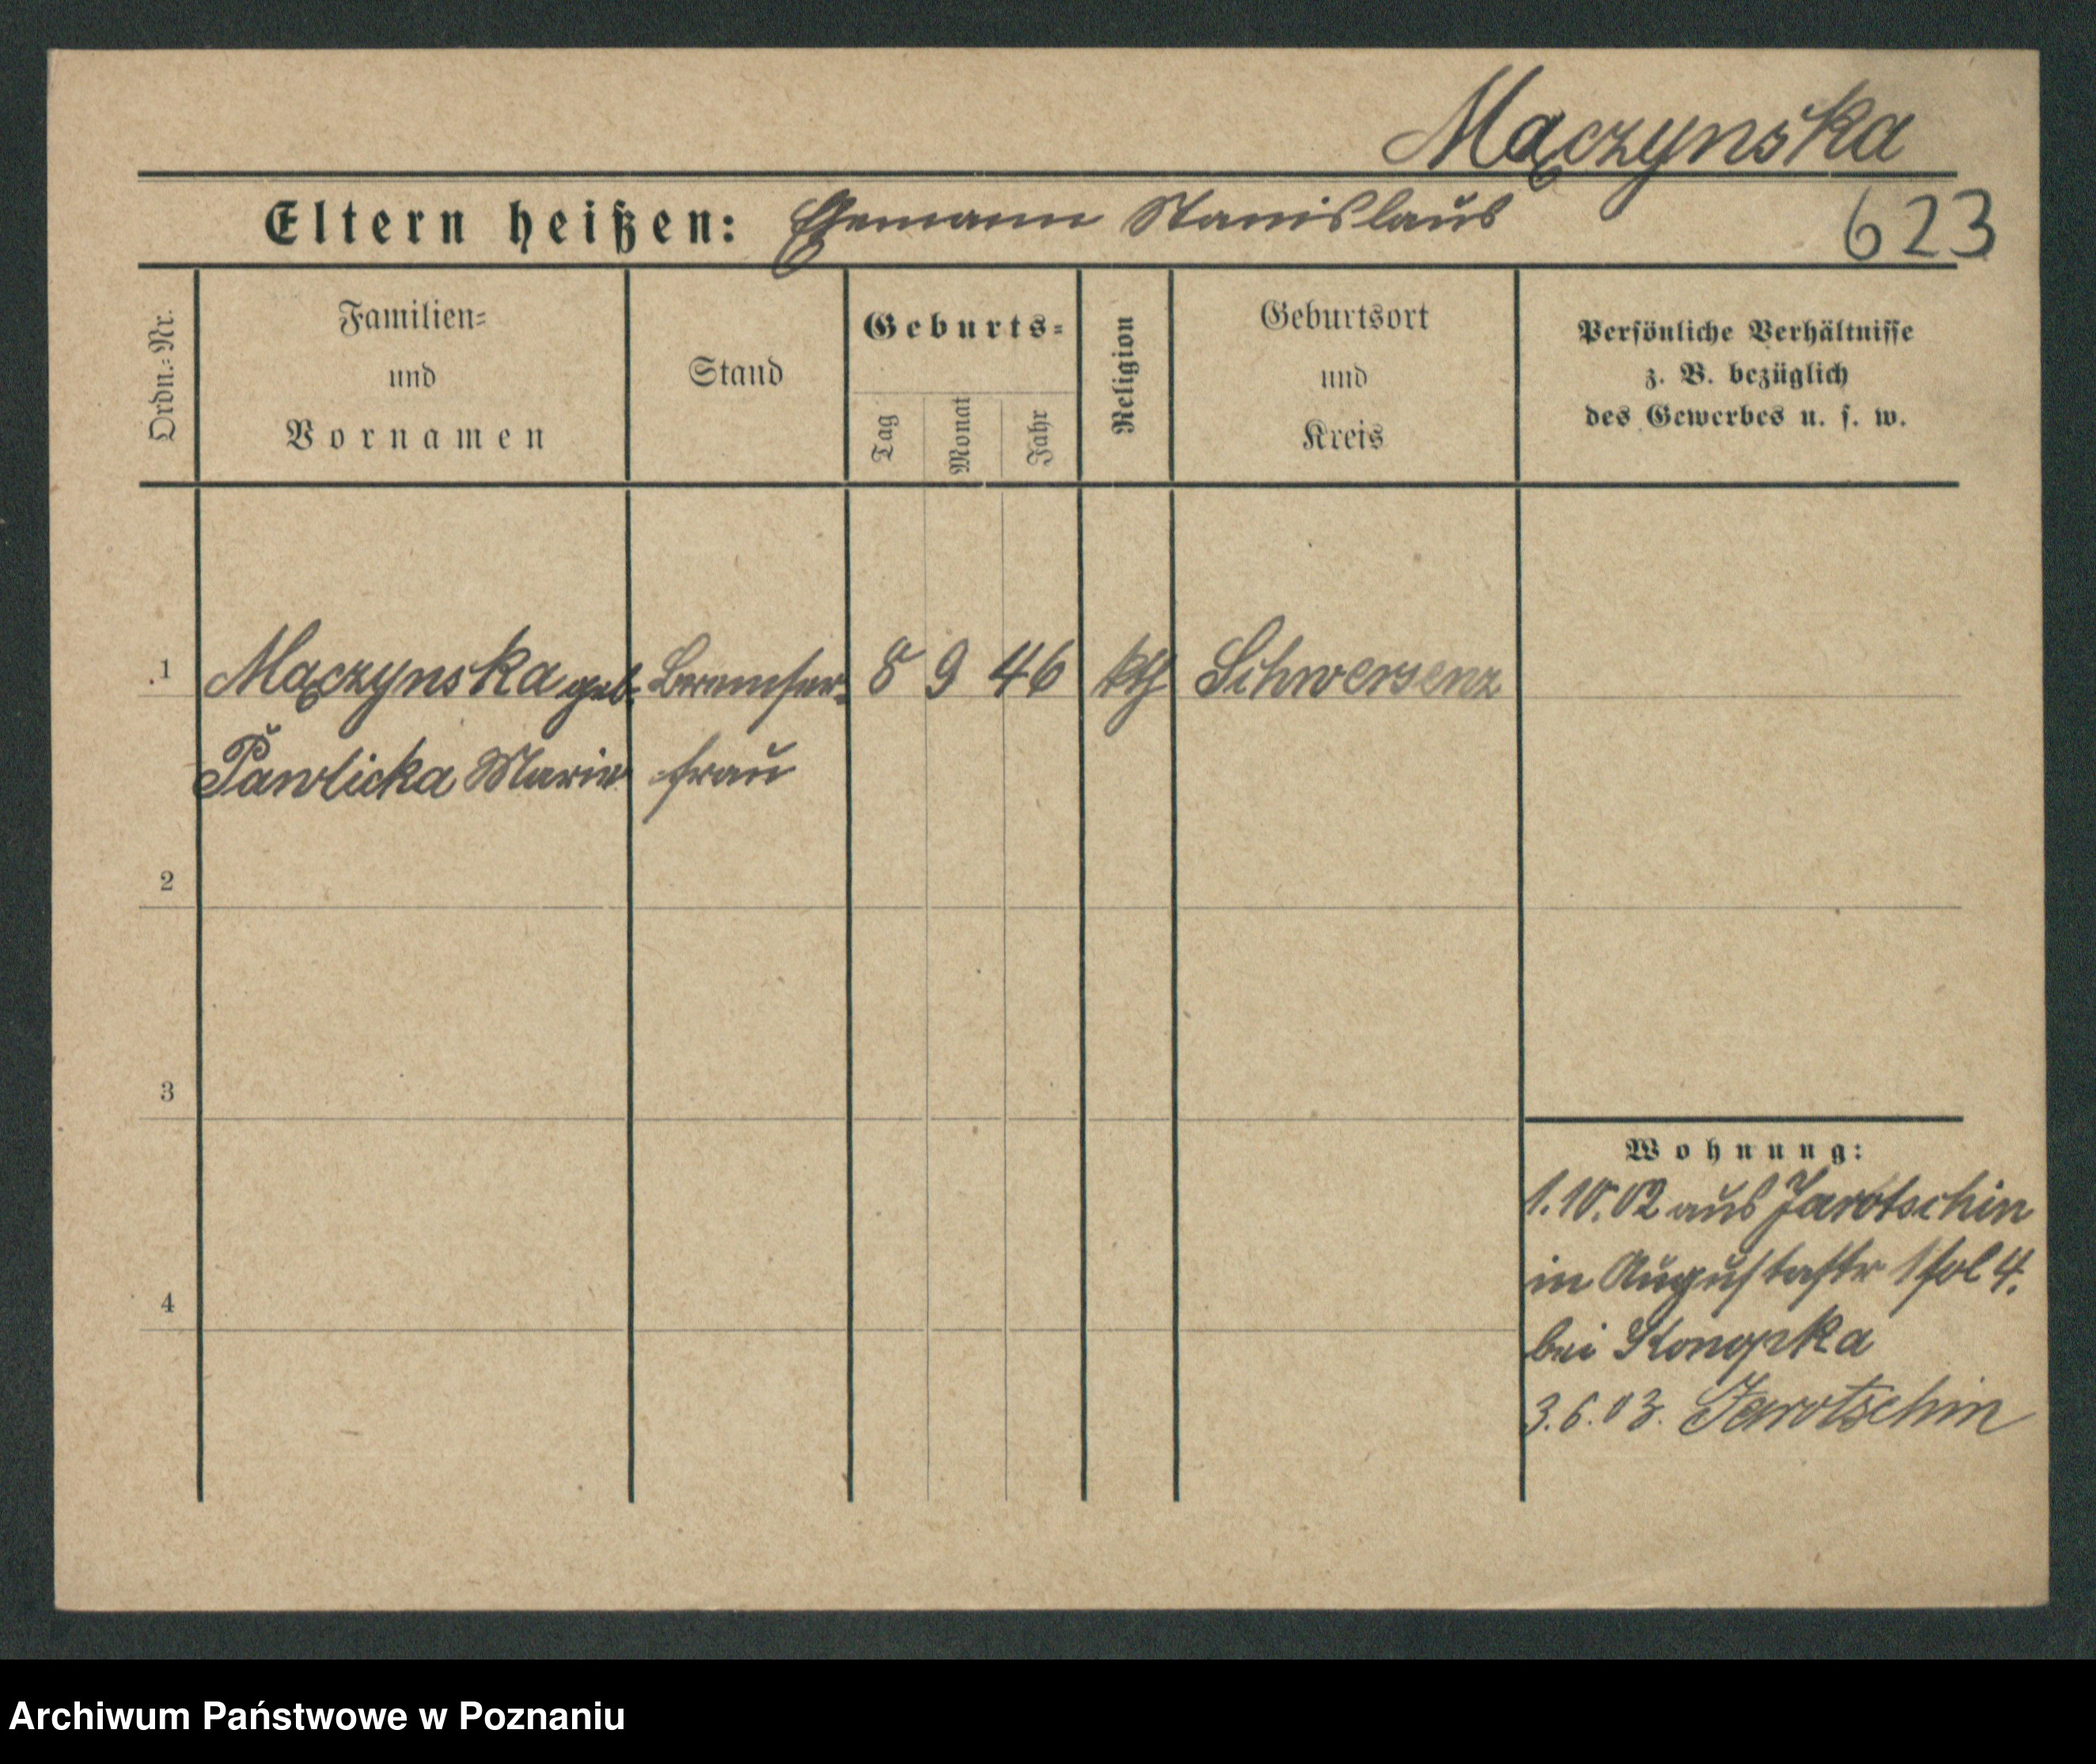 Mączynska
Eltern heißen: Ehemann Stanislaus
623
Ordn.-Nr.
Familien-
und
Vornamen
Stand
Geburts-
Tag
Monat
Jahr
Religion
Geburtsort
und
Kreis
Persönliche Verhältnisse
z. B. bezüglich
des Gewerbes u. s. w.
1 Mączynska geb. 8 9 46 kth Schwersenz
Pawlicka Marie frau
2
3
4
Wohnung:
1.10.02 aus Jarotschin
in Augustastr 1 fol 4.
bei Konopka
3.6.03. Jarotschin
Archiwum Państwowe w Poznaniu